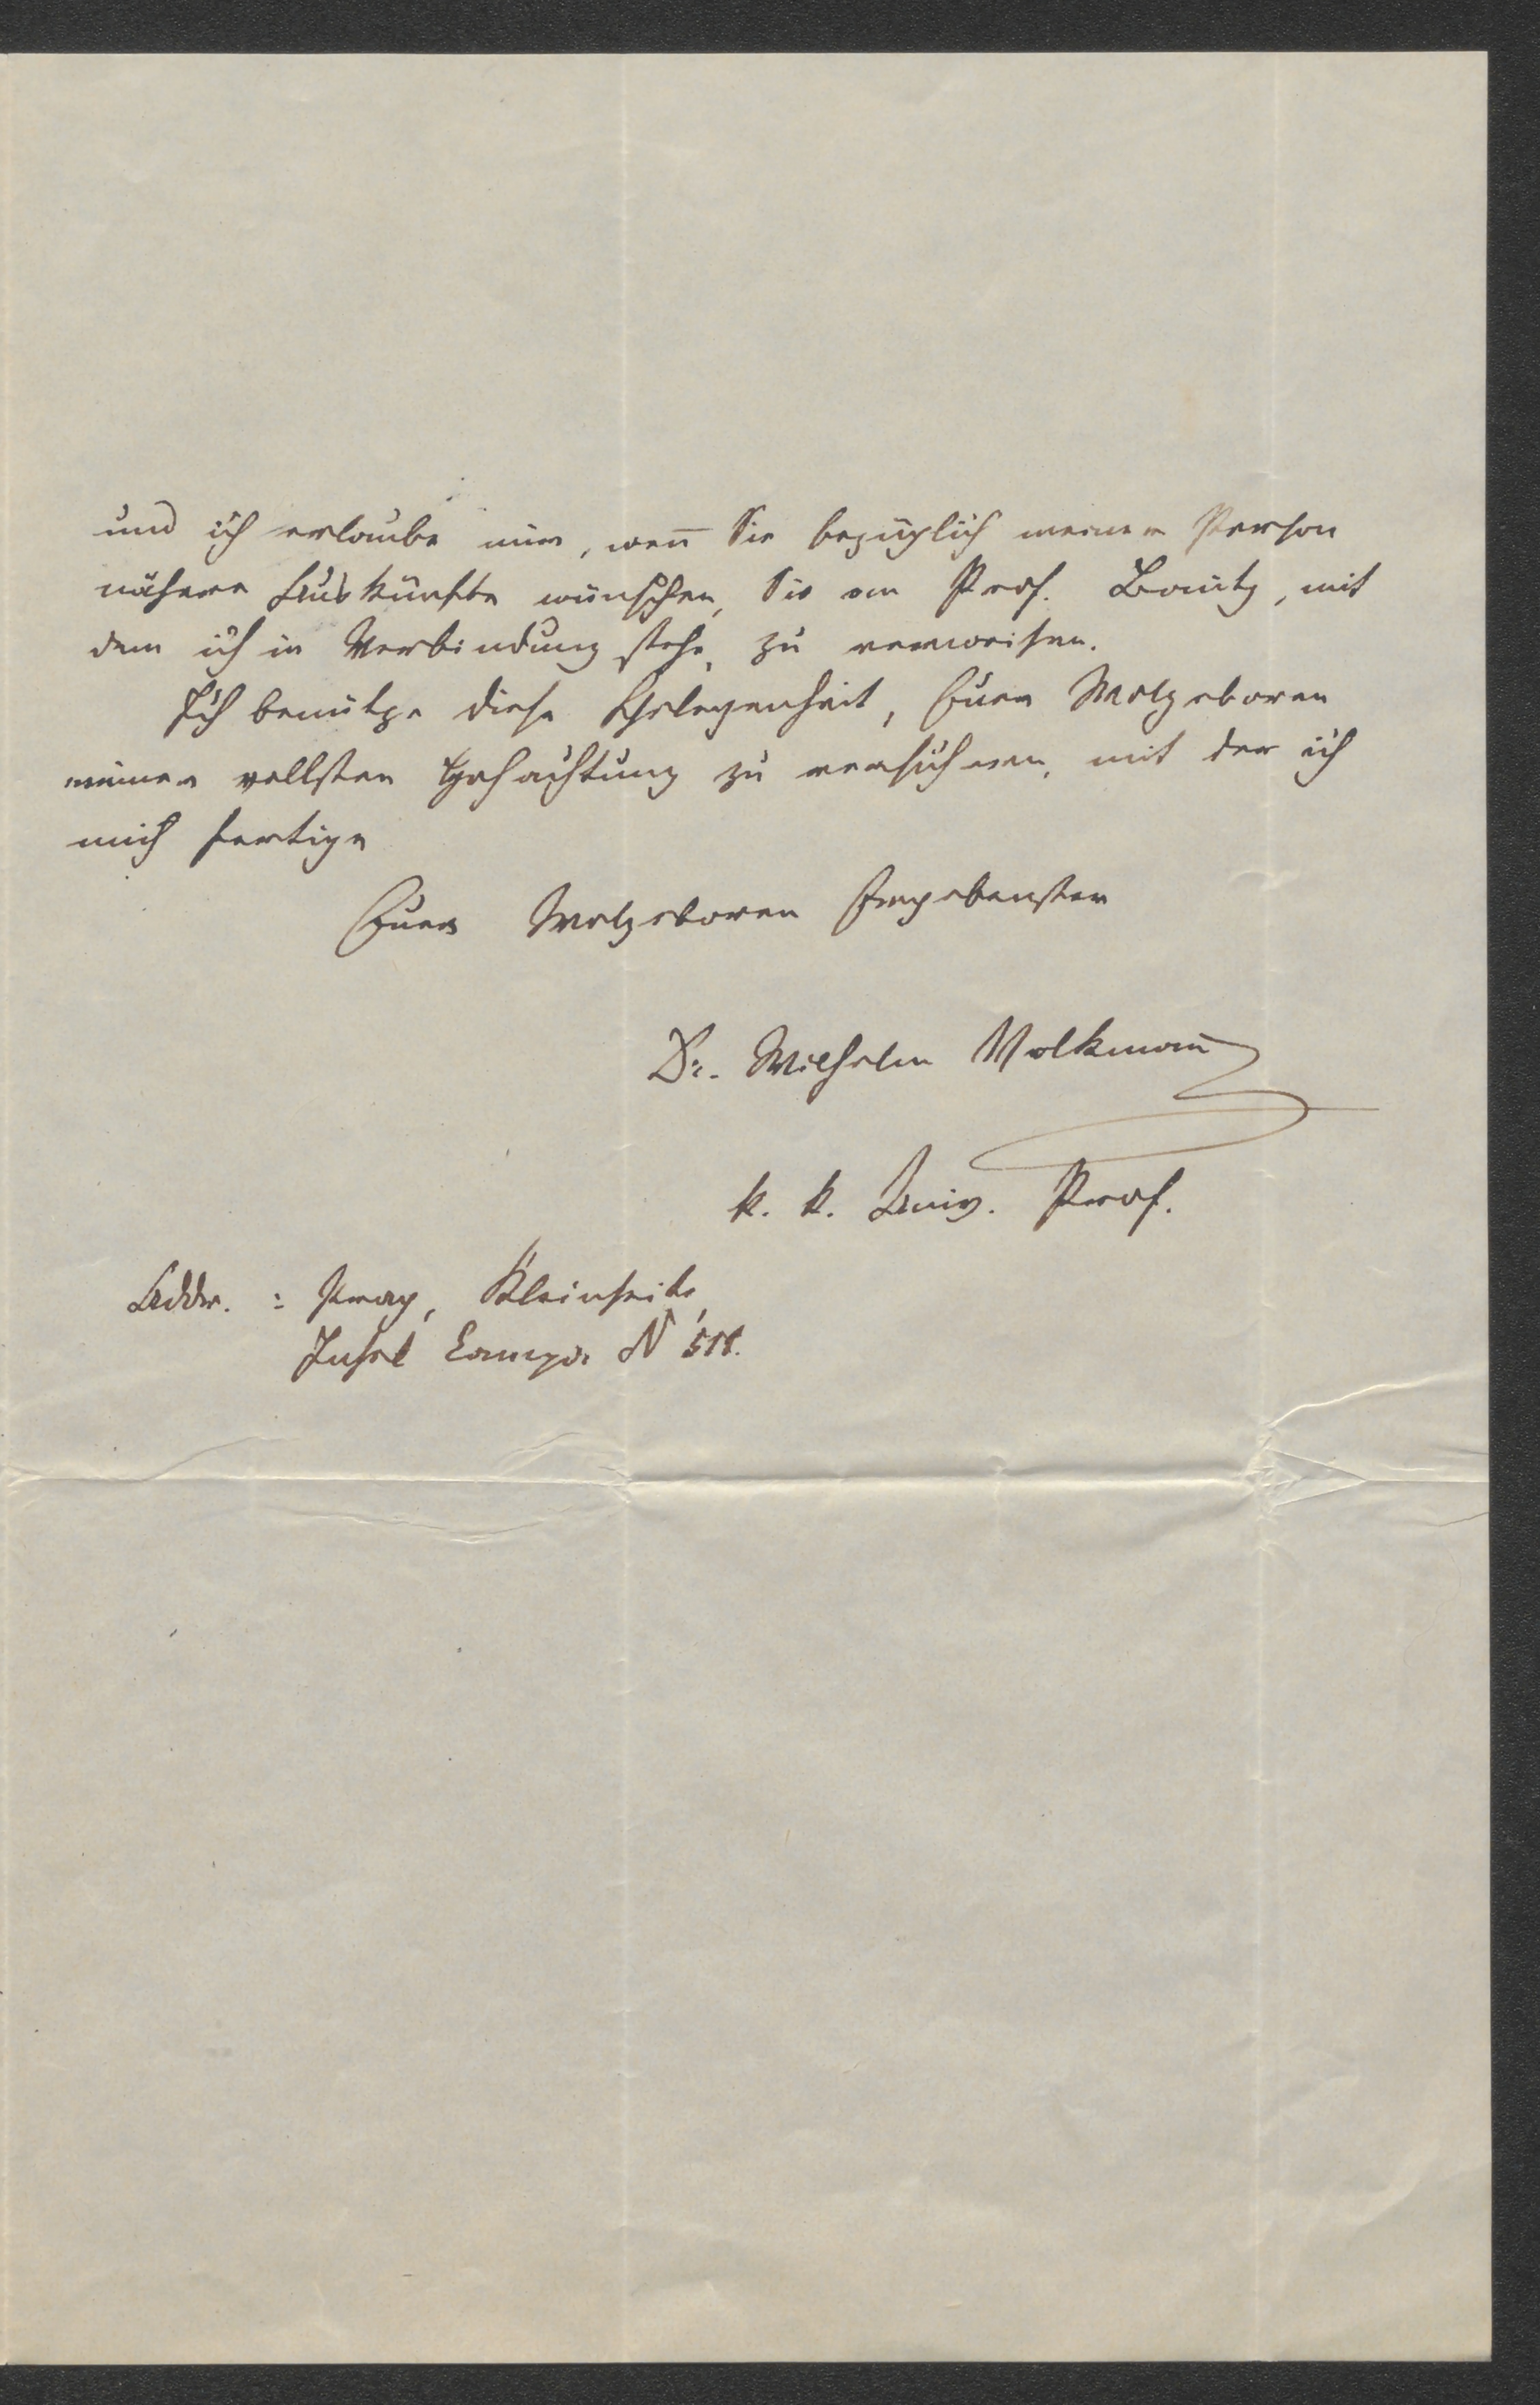 und ich erlaube mir, weñ Sie bezüglich meiner Person
nähere Auskünfte wünschen, Sie an Prof. Bonitz, mit
dem ich in Verbindung stehe, zu verweisen.
Ich benütze diese Gelegenheit, Euer Wolgeboren
meiner vollsten Hochachtung zu versichern, mit der ich
mich fertige
Euer Wolgeboren Ergebenster
Dr. Wilhelm Volkmañ
k. k. Univ. Prof.
Addr. : Prag, Kleinseite,
Insel Campa N